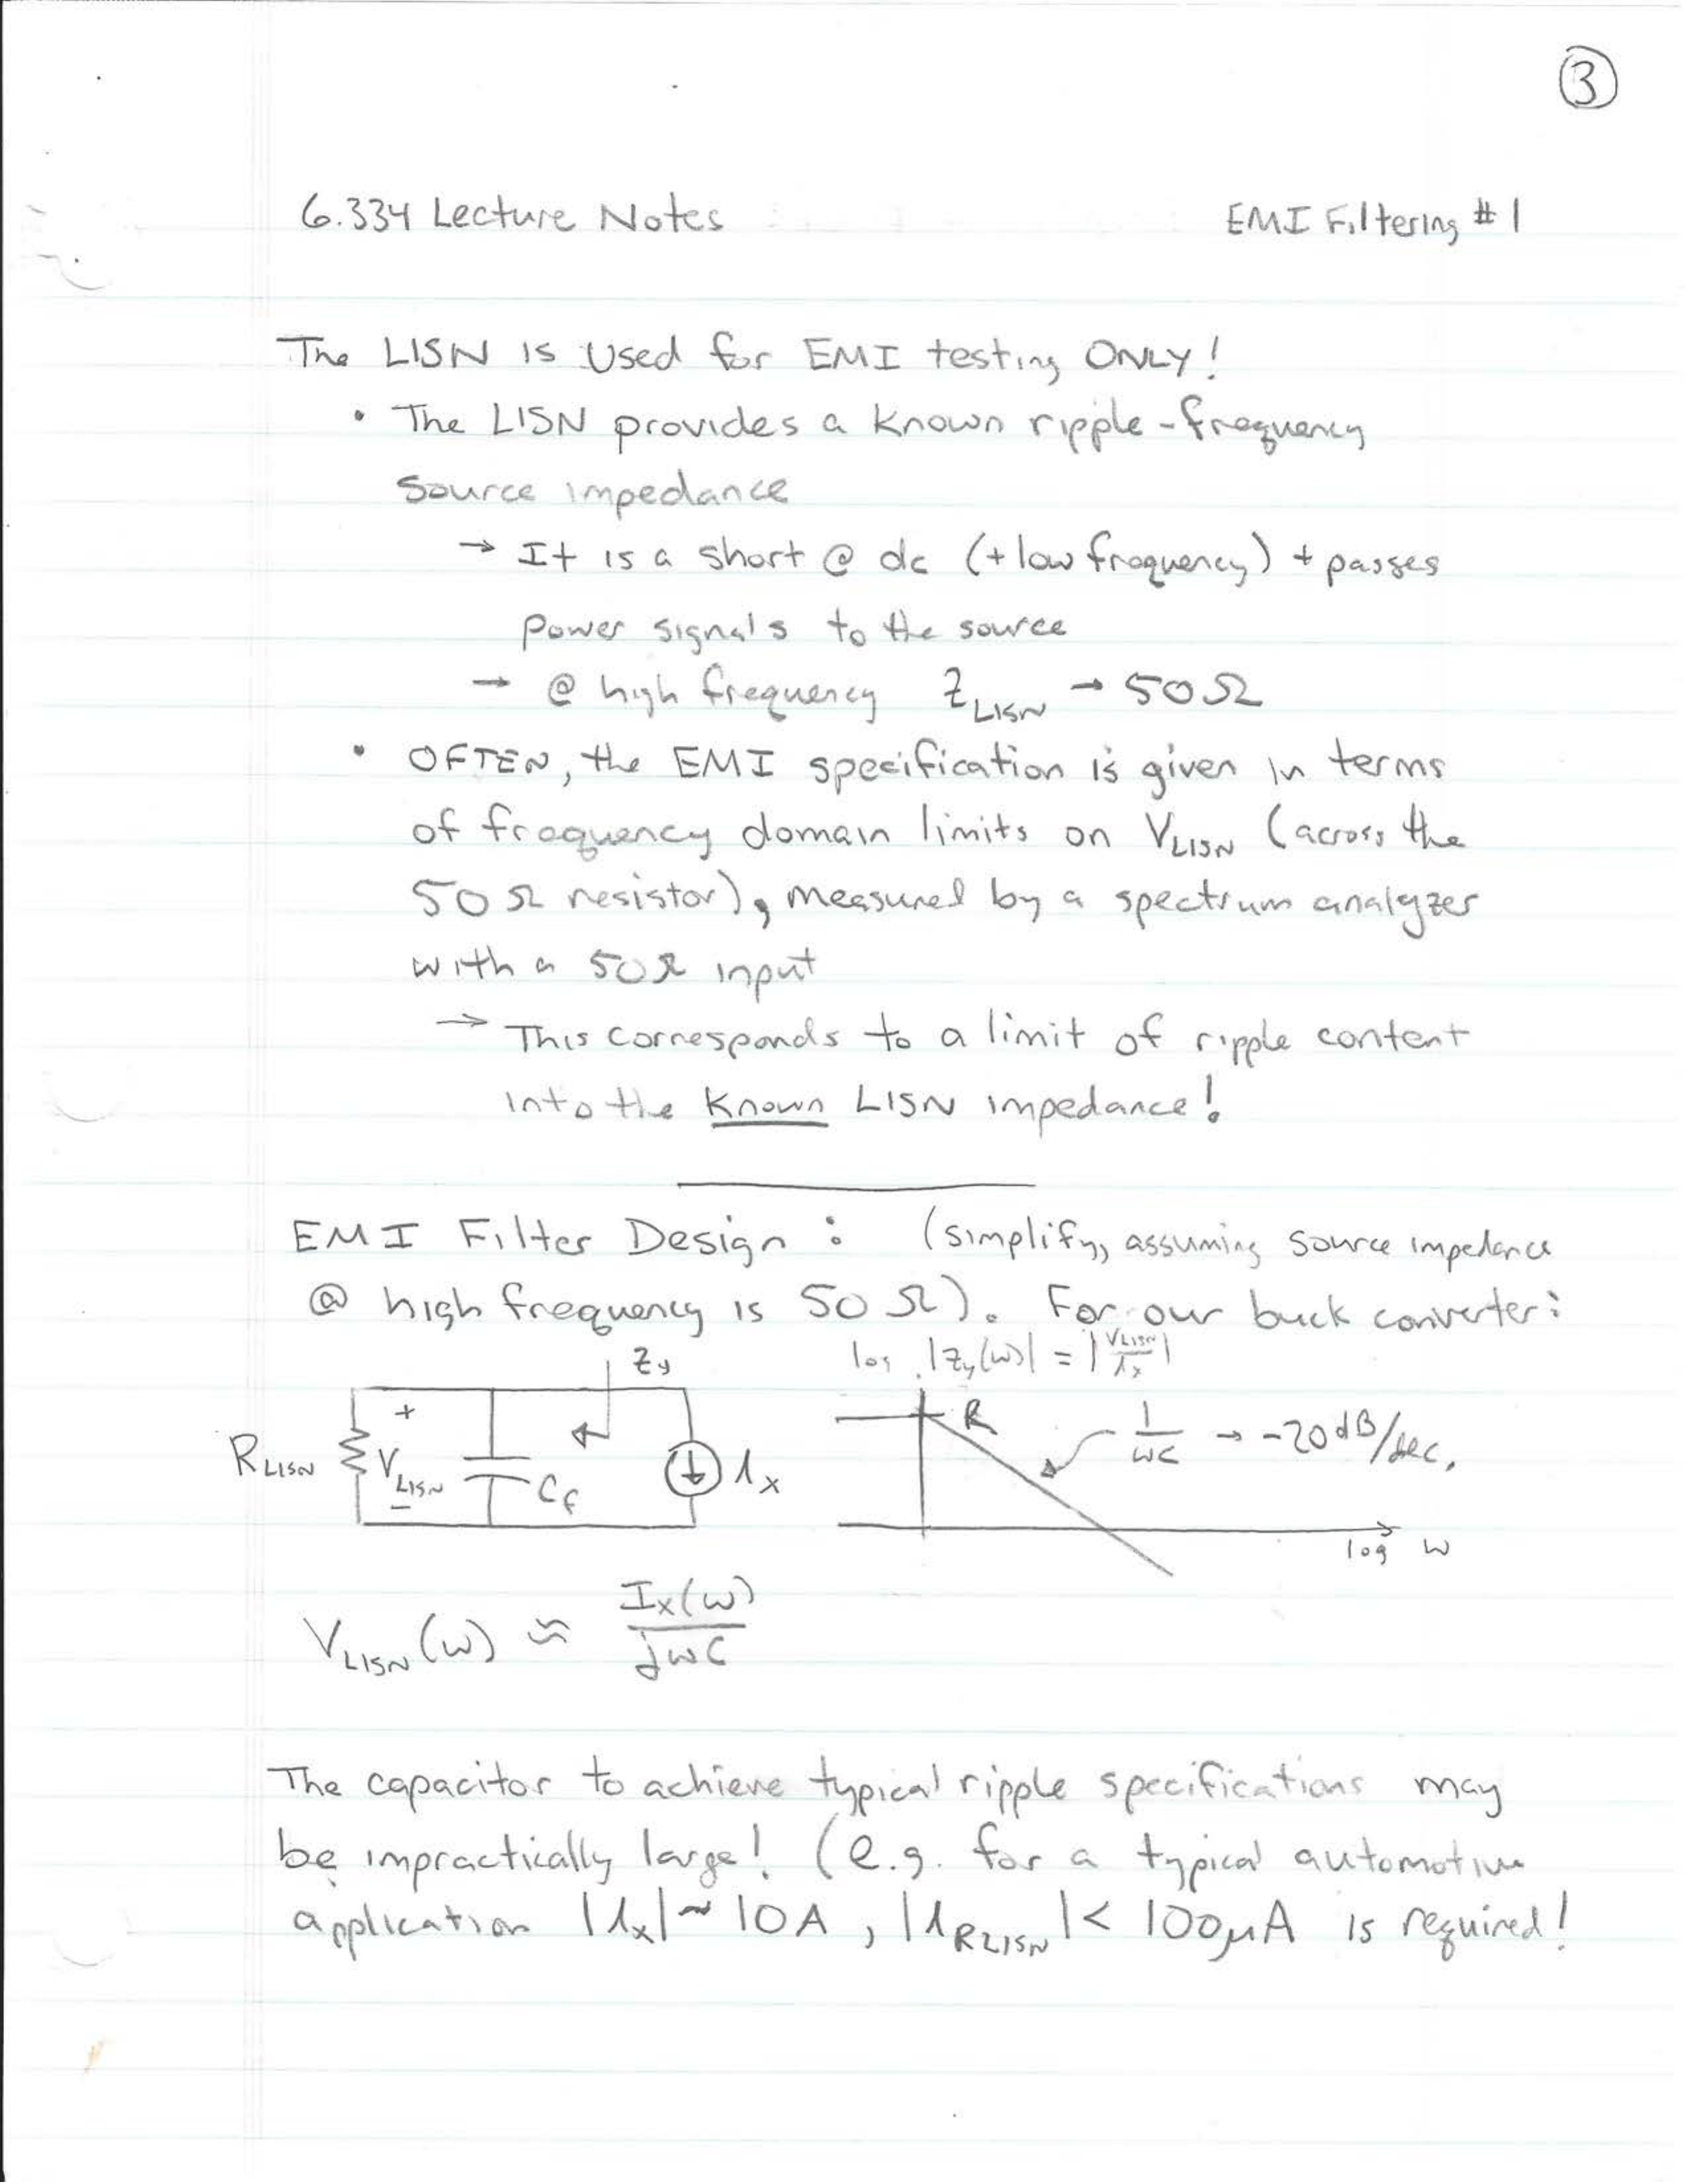 3
6.334 Lecture Notes EMI Filtering #1
The LISN is used for EMI testing ONLY!
• The LISN provides a known ripple-frequency
source impedance
→ It is a short @ dc (+ low frequency) + passes
power signals to the source
→ @ high frequency Z_LISN → 50Ω
• OFTEN, the EMI specification is given in terms
of frequency domain limits on V_LISN (across the
50Ω resistor), measured by a spectrum analyzer
with a 50Ω input
→ This corresponds to a limit of ripple content
into the known LISN impedance!
EMI Filter Design: (simplify, assuming source impedance
@ high frequency is 50Ω). For our buck converter:
Z_y log |Z_y(ω)| = |V_LISN/i_x|
+ R 1/ωC → -20dB/dec.
R_LISN V_LISN C_f i_x
−
log ω
V_LISN(ω) ≈ I_x(ω)/jωC
The capacitor to achieve typical ripple specifications may
be impractically large! (e.g. for a typical automotive
application |i_x| ~ 10A, |i_RLISN| < 100μA is required!